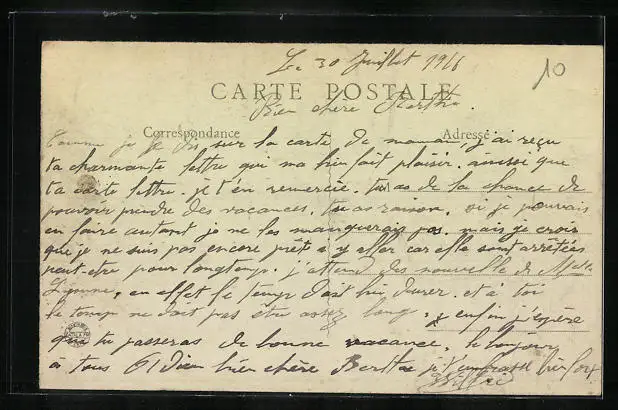 Le 30 Juillet 1916
10
CARTE POSTALE
Bien chère Berthe.
Correspondance
Adresse
Comme je dis sur la carte de maman, j'ai reçu
ta charmante lettre qui ma bien fait plaisir. aussi que
ta carte lettre. je t'en remercie. tu as de la chance de
pouvoir prendre des vacances. tu as raison. si je pouvais
en faire autant je ne les manquerais pas. mais je crois
que je ne suis pas encore prête à y aller car elle sont arrêtées
peut-etre pour longtemps. j'attend des nouvelle de Melle
en effet le temps doit lui durer. et à toi
le temps ne doit pas être assez long. enfin j'espère
que tu passeras de bonne vacance. le bonjour
à tous Dieu bien chère Berthe je t'embrasse bien fort